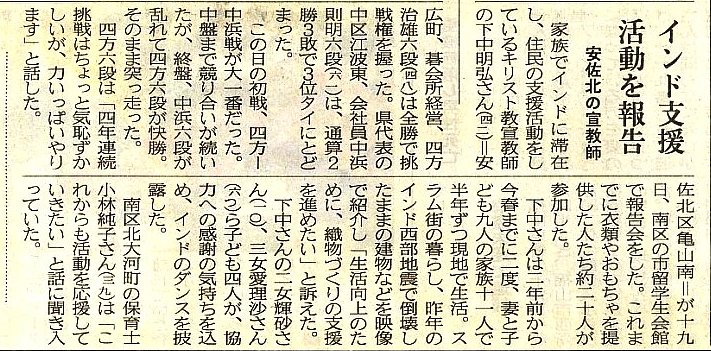 インド支援
活動を報告
安佐北の宣教師
家族でインドに滞在
し、住民の支援活動をし
ているキリスト教宣教師
の下中明弘さん(四二)=安
佐北区亀山南=が十九
日、南区の市留学生会館
で報告会をした。これま
でに衣類やおもちゃを提
供した人たち約二十人が
参加した。
下中さんは二年前から
今春までに二度、妻と子
ども九人の家族十一人で
半年ずつ現地で生活。ス
ラム街の暮らし、昨年の
インド西部地震で倒壊し
たままの建物などを映像
で紹介し「生活向上のた
めに、織物づくりの支援
を進めたい」と訴えた。
下中さんの二女輝砂さ
ん(一〇)、三女愛理沙さん
(六つ)ら子ども四人が、協
力への感謝の気持ちを込
め、インドのダンスを披
露した。
南区北大河町の保育士
小林純子さん(三九)は「こ
れからも活動を応援して
いきたい」と話に聞き入
っていた。
広町、碁会所経営、四方
治雄六段(四八)は全勝で挑
戦権を握った。県代表の
中区江波東、会社員中浜
則明六段は、通算2
勝3敗で3位タイにとど
まった。
この日の初戦、四方ー
中浜戦が大一番だった。
中盤まで競り合いが続い
たが、終盤、中浜六段が
乱れて四方六段が快勝。
そのまま突っ走った。
四方六段は「四年連続
挑戦はちょっと気恥ずか
しいが、力いっぱいやり
ます」と話した。